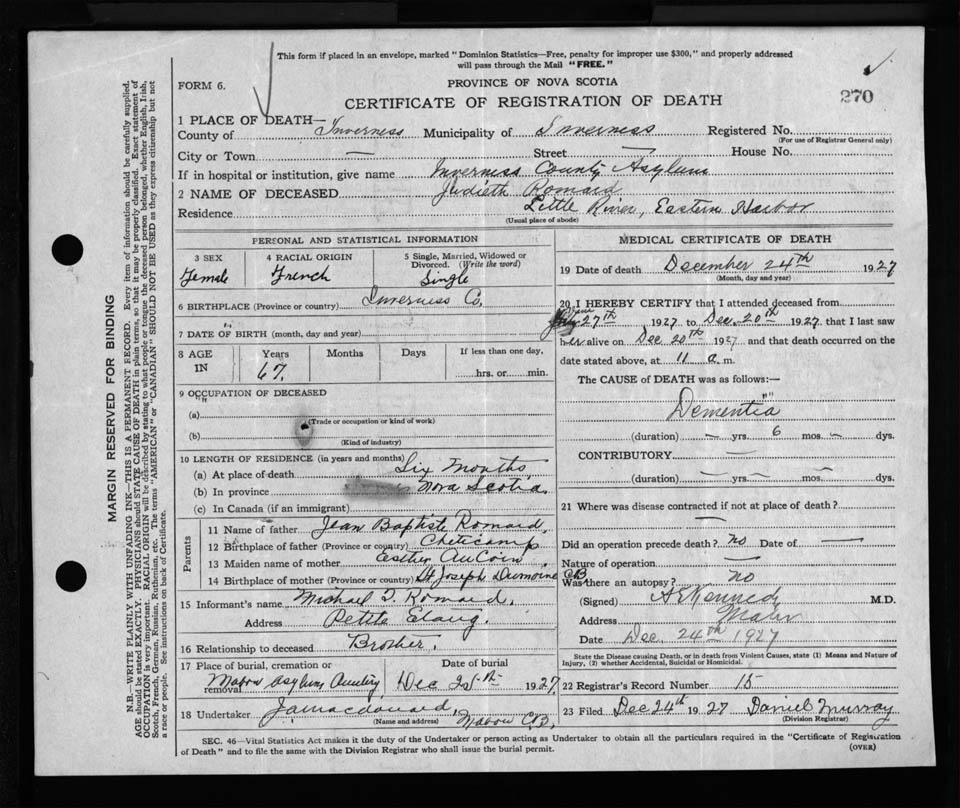 This form if placed in an envelope, marked "Dominion Statistics—Free, penalty for improper use $300," and properly addressed
will pass through the Mail "FREE."
FORM 6.
PROVINCE OF NOVA SCOTIA
270
CERTIFICATE OF REGISTRATION OF DEATH
1 PLACE OF DEATH—
County of Inverness Municipality of Inverness Registered No.
(For use of Registrar General only)
City or Town — Street — House No.
If in hospital or institution, give name Inverness County Asylum
2 NAME OF DECEASED Judieth Romard
Residence Little River, Eastern Harbor
(Usual place of abode)
PERSONAL AND STATISTICAL INFORMATION
3 SEX 4 RACIAL ORIGIN 5 Single, Married, Widowed or
Divorced. (Write the word)
Female French Single
6 BIRTHPLACE (Province or country) Inverness Co.
7 DATE OF BIRTH (month, day and year) "
8 AGE IN Years Months Days If less than one day,
67. hrs. or min.
9 OCCUPATION OF DECEASED
(a)
(Trade or occupation or kind of work)
(b)
(Kind of industry)
10 LENGTH OF RESIDENCE (in years and months)
(a) At place of death Six Months
(b) In province Nova Scotia
(c) In Canada (if an immigrant)
Parents
11 Name of father Jean Baptiste Romard
12 Birthplace of father (Province or country) Cheticamp
13 Maiden name of mother Esther AuCoin
14 Birthplace of mother (Province or country) St Joseph Dumoine CB
15 Informant's name Michael T. Romard.
Address Petite Etang.
16 Relationship to deceased Brother.
17 Place of burial, cremation or removal Date of burial
Mabou Asylum Cemetery, Dec 25th 1927
18 Undertaker J.A. Macdonald,
(Name and address) Mabou CB.
MEDICAL CERTIFICATE OF DEATH
19 Date of death December 24th 1927
(Month, day and year)
20 I HEREBY CERTIFY that I attended deceased from
June 27th 1927 to Dec. 20th 1927 that I last saw
her alive on Dec 20th 1927 and that death occurred on the
date stated above, at 11 a. m.
The CAUSE of DEATH was as follows:—
Dementia
(duration) — yrs. 6 mos. — dys.
CONTRIBUTORY —
(duration) — yrs. — mos. — dys.
21 Where was disease contracted if not at place of death?
—
Did an operation precede death? no Date of —
Nature of operation —
Was there an autopsy? no
(Signed) A R Kennedy M.D.
Address Mabou
Date Dec. 24th 1927
State the Disease causing Death, or in death from Violent Causes, state (1) Means and Nature of
Injury, (2) whether Accidental, Suicidal or Homicidal.
22 Registrar's Record Number 15
23 Filed Dec 24th 1927 Daniel Murray
(Division Registrar)
SEC. 46—Vital Statistics Act makes it the duty of the Undertaker or person acting as Undertaker to obtain all the particulars required in the "Certificate of Registration
of Death" and to file the same with the Division Registrar who shall issue the burial permit.
(OVER)
MARGIN RESERVED FOR BINDING
N.B.—WRITE PLAINLY WITH UNFADING INK—THIS IS A PERMANENT RECORD. Every item of information should be carefully supplied.
AGE should be stated EXACTLY. PHYSICIANS should STATE CAUSE OF DEATH in plain terms, so that it may be properly classified. Exact statement of
OCCUPATION is very important. RACIAL ORIGIN will be described by stating to what people or tongue the deceased person belonged, whether English, Irish,
Scotch, French, German, Russian, Ruthenian, etc. The terms "AMERICAN" or "CANADIAN" SHOULD NOT BE USED as they express citizenship but not
a race or people. See instructions on back of Certificate.